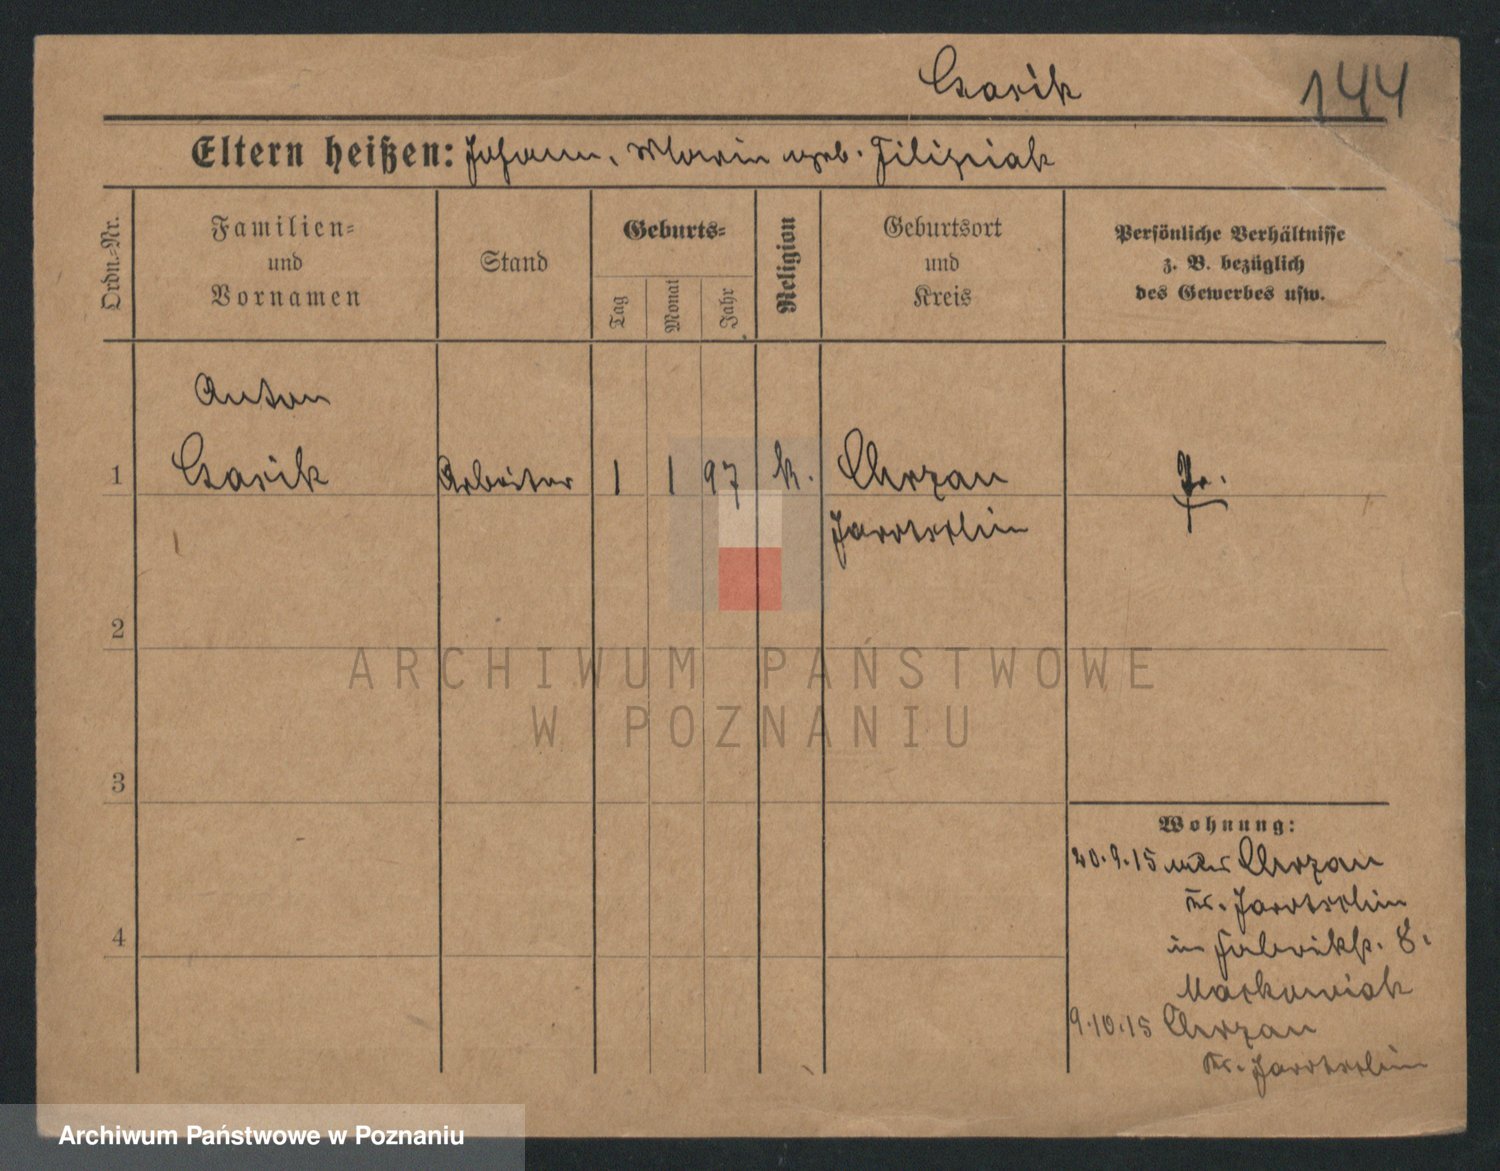 Czarik
144
Eltern heißen: Johann, Maria geb. Filipiak
Ordn.-Nr.
Familien-
und
Vornamen
Stand
Geburts-
Tag
Monat
Jahr
Religion
Geburtsort
und
Kreis
Persönliche Verhältnisse
z. B. bezüglich
des Gewerbes usw.
Anton
1 Czarik Arbeiter 1 1 97 k. Chrzan
Jarotschin
2
3
4
Wohnung:
20.9.15 Chrzan
Kr. Jarotschin
in Fabrikstr. 8.
Markowiak
9.10.15 Chrzan
Kr. Jarotschin
ARCHIWUM PAŃSTWOWE
W POZNANIU
Archiwum Państwowe w Poznaniu